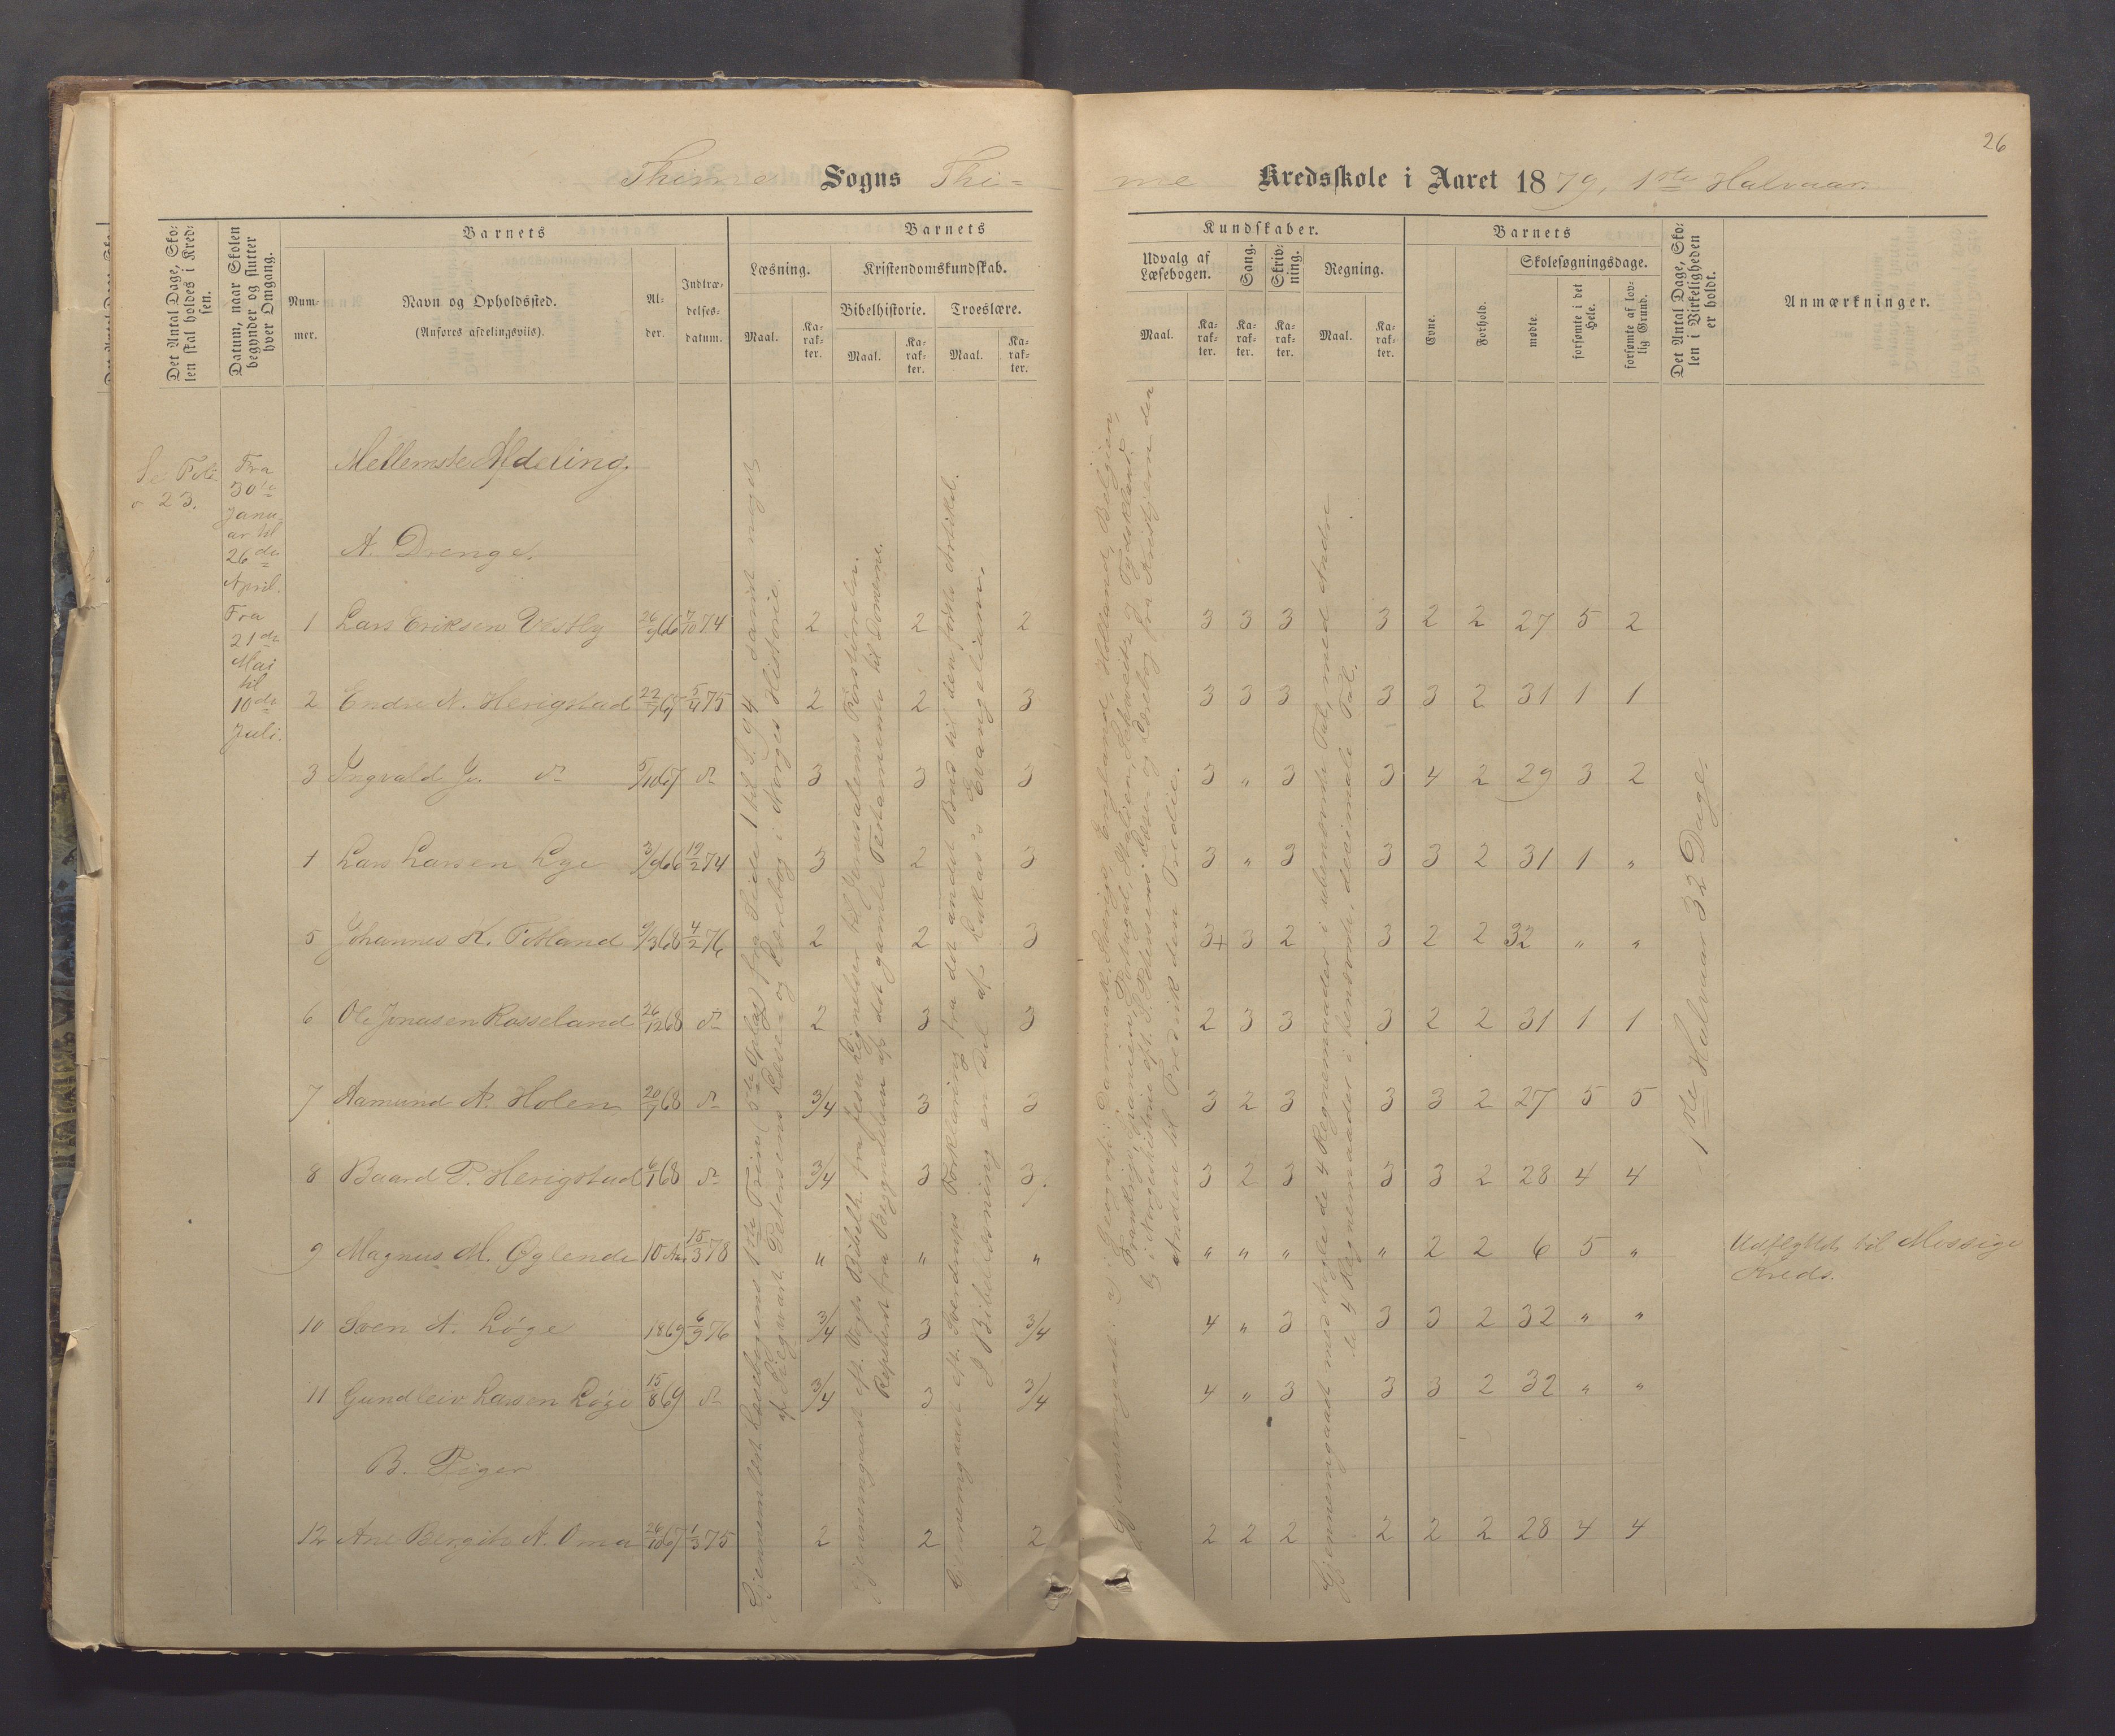 26
Thime Sogns Thi-
me Kredsskole i Aaret 1879, 1ste Halvaar.
Det Antal Dage, Sko-
len skal holdes i Kred-
sen.
Datum, naar Skolen
begynder og slutter
hver Omgang.
Barnets
Num-
mer.
Navn og Opholdssted.
(Anføres afdelingsviis).
Al-
der.
Indtræ-
delses-
datum.
Barnets
Læsning.
Maal.
Ka-
rak-
ter.
Kristendomskundskab.
Bibelhistorie.
Maal.
Ka-
rak-
ter.
Troeslære.
Maal.
Ka-
rak-
ter.
Kundskaber.
Udvalg af
Læsebogen.
Maal.
Ka-
rak-
ter.
Sang.
Ka-
rak-
ter.
Skriv-
ning.
Ka-
rak-
ter.
Regning.
Maal.
Ka-
rak-
ter.
Barnets
Evne.
Forhold.
Skolesøgningsdage.
mødte.
forsømte i det
Hele.
forsømte af lov-
lig Grund.
Det Antal Dage, Sko-
len i Virkeligheden
er holdt.
Anmærkninger.
Se Foli-
o 23.
Fra
30te
Janu-
ar til
26de
April.
Fra
21de
Mai
til
10de
Juli.
Mellemste Afdeling.
A. Drenge.
1 Lars Eriksen Vestly 26/9 66 7/10 74 2 2 2 3 3 3 3 2 2 27 5 2
2 Endre N. Herigstad 22/7 67 5/4 75 2 2 3 3 3 3 3 3 2 31 1 1
3 Ingvald J. do 5/10 67 do 3 3 3 3 " 3 3 4 2 29 3 2
4 Lars Larsen Lye 3/9 66 19/2 74 3 2 3 3 " 3 3 3 2 31 1 "
5 Johannes K. Fotland 9/3 68 4/2 76 2 2 3 3+ 3 2 3 2 2 32 " "
6 Ole Jonasen Rosseland 26/12 68 do 2 3 3 2 3 3 3 2 2 31 1 1
7 Aamund N. Holen 20/7 68 do 3/4 3 3 3 2 3 3 3 2 27 5 5
8 Baard P. Herigstad 6/1 68 do 3/4 3 3. 3 2 3 3 3 2 28 4 4
9 Magnus M. Øglende 10 Aar 15/3 78 " " " " " " " 2 2 6 5 " Udflyttet til Mossige
Kreds.
10 Sven N. Løge 1869 6/9 76 3/4 3 3/4 4 " 3 3 3 2 32 " "
11 Gundleiv Larsen Løge 15/8 69 do 3/4 3 3/4 4 " 3 3 3 2 32 " "
B. Piger
12 Ane Bergite A. Oma 26/10 67 1/3 75 2 2 2 2 2 2 2 2 2 28 4 4
Gjennemlæst Læsebogens 1ste Trin (5te Oplag) fra Side 1 til S. 94 samt noget
af Siegwart Petersens Læse og Lærebog i Norges Historie.
Gjennemgaaet eft. Vogts Bibelh. fra Jesu Lignelser til Jerusalems Forstyrrelse.
Repeteret fra Begyndelsen af det gamle Testamente til Domerne.
Gjennemgaaet eft. Sverdrups Forklaring fra det andet Bud til den første Artikel.
I Bibellæsning en Del af Lukas's Evangelium.
Gjennemgaaet: a) i Geografi: Danmark, Sverige, England, Holland, Belgien,
Frankrige, Spanien, Portugal, Italien, Schweitz og Tydskland.
b) i Norgeshistorie eft. S. Petersens Læse- og Lærebog fra Kristjern den
Anden til Fredrik den Tredie.
Gjennemgaaet med Nogle de 4 Regnemaader i ubenævnte Tal, med Andre
de 4 Regnemaader i benævnte, decimale Tal.
1ste Halvaar 32 Dage.